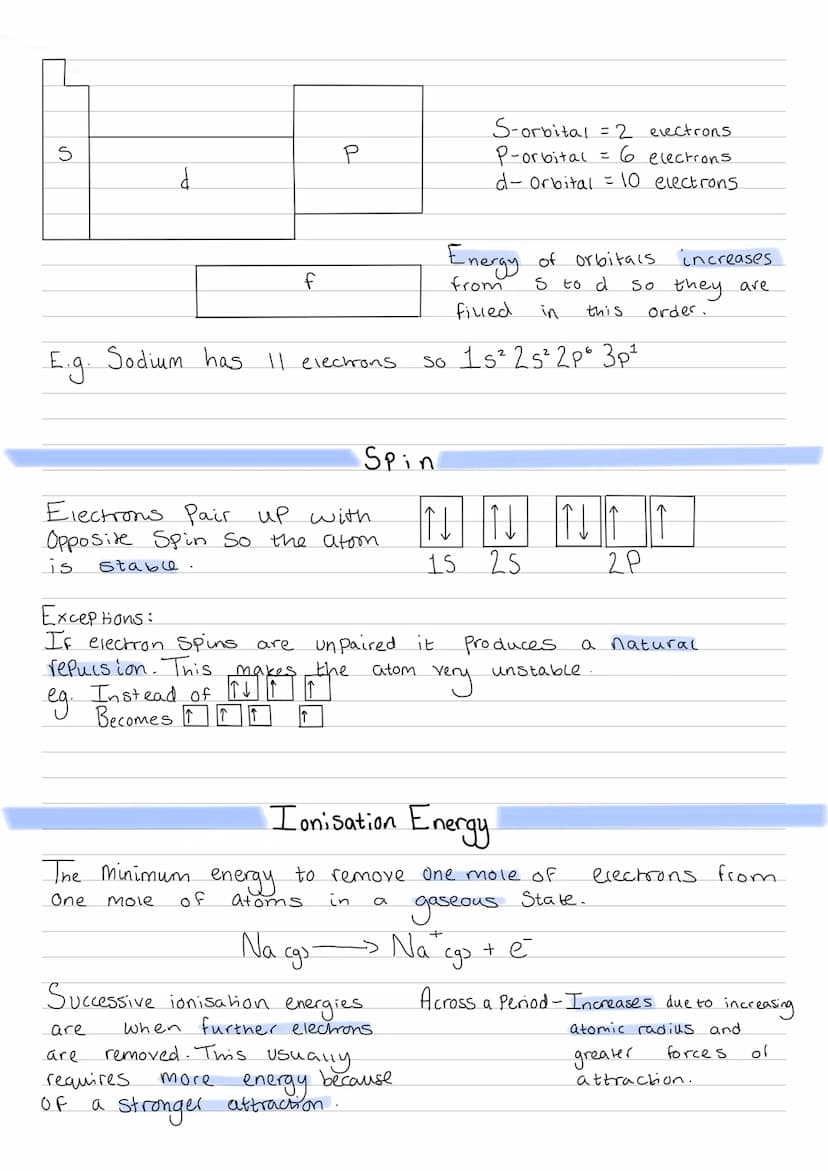 S
d
P
f
S-orbital = 2 electrons
P-orbital = 6 electrons
d-orbital = 10 electrons
Energy of orbitals increases
from S to d so they are
filled in this order.
E.g. Sodium has 11 electrons so 1s² 2s² 2p⁶ 3p¹
Spin
Electrons Pair up with
Opposite Spin so the atom
is stable.
↑↓ ↑↓ ↑↓ ↑ ↑
1S 2S 2P
Exceptions:
If electron spins are unpaired it produces a natural
repulsion. This makes the atom very unstable.
eg. Instead of ↑↓ ↑ ↑
Becomes ↑ ↑ ↑ ↑
Ionisation Energy
The Minimum energy to remove one mole of electrons from
One mole of atoms in a gaseous State.
Na (g) → Na⁺ (g) + e⁻
Successive ionisation energies
are when further electrons
are removed. This usually
requires more energy because
of a stronger attraction.
Across a Period - Increases due to increasing
atomic radius and
greater forces of
attraction.